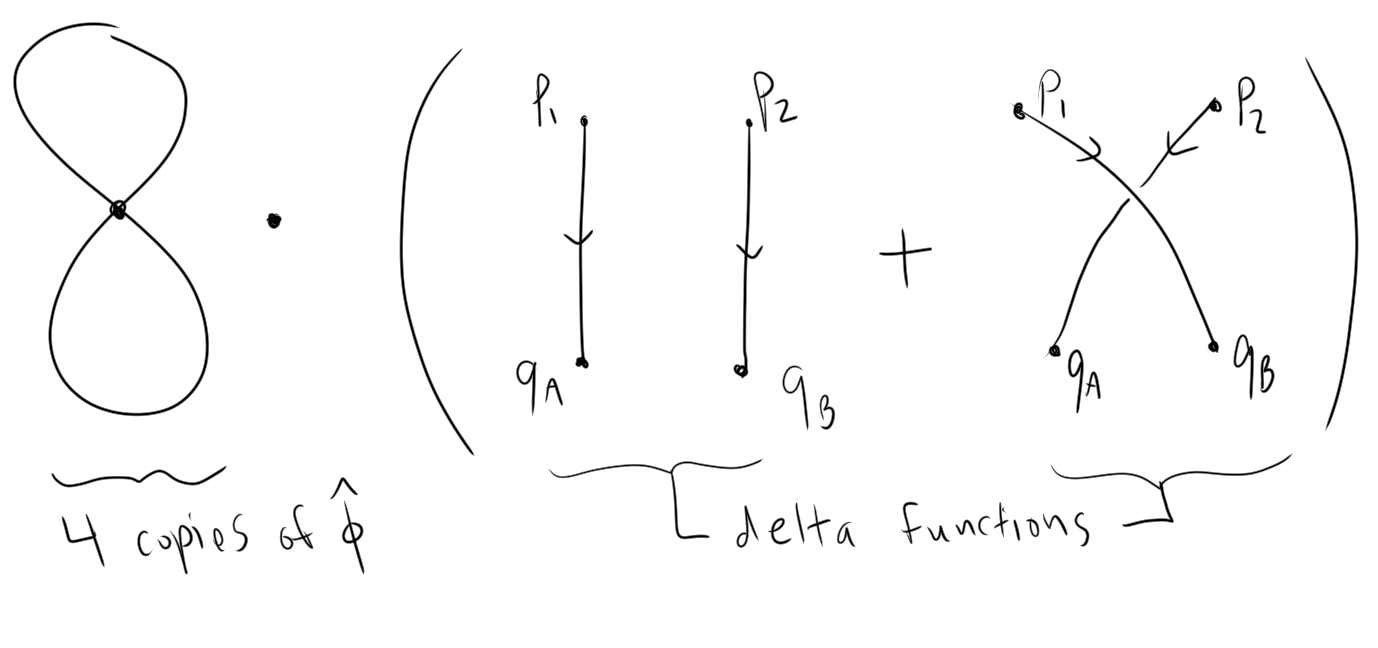 P₁ P₂ P₁ P₂
+
q_A q_B q_A q_B
4 copies of φ̂ delta functions